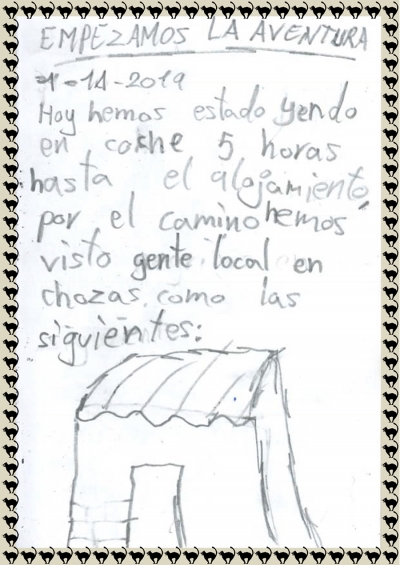 EMPEZAMOS LA AVENTURA
1-14-2019
Hoy hemos estado yendo
en coche 5 horas
hasta el alojamiento,
por el camino hemos
visto gente local en
chozas, como las
siguientes: